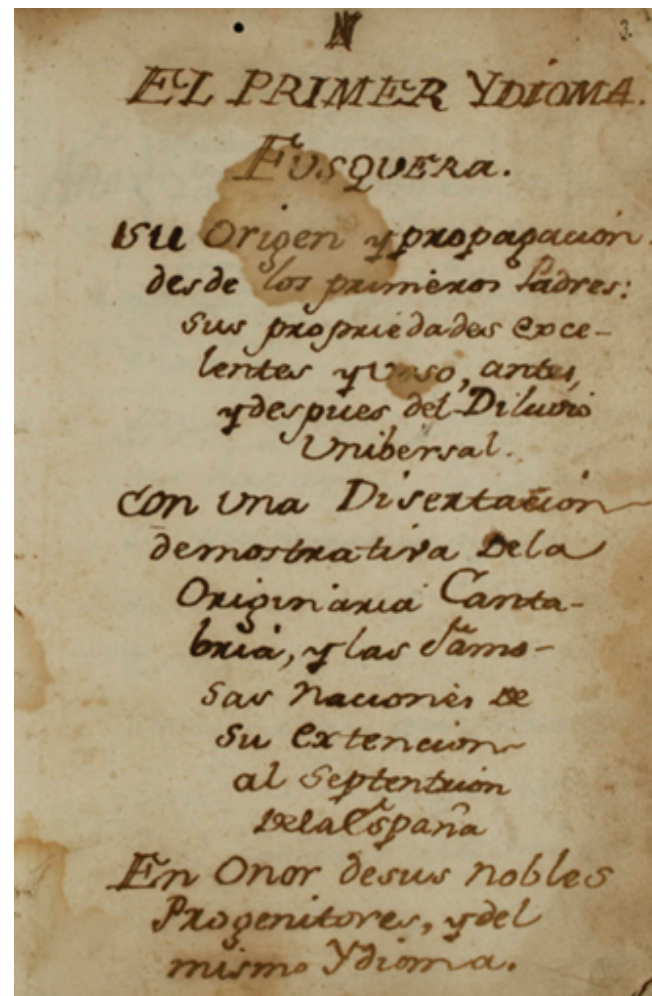 3.
EL PRIMER YDIOMA.
EUSQUERA.
su Origen y propagacion
desde los primeros Padres:
sus propriedades exce-
lentes y uso, antes,
y despues del Diluvio
Unibersal.
Con una Disertación
demostrativa dela
Originaria Canta-
bria, y las famo-
sas naciones de
su extencion
al Septentrion
dela España
En Onor desus nobles
Progenitores, y del
mismo Ydioma.